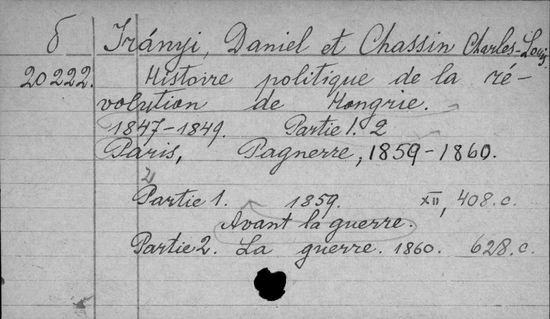 б Irányi, Daniel et Chassin Charles-Louis
20222. Histoire politique de la ré-
volution de Hongrie.
1847-1849. Partie 1. 2
Paris, Pagnerre, 1859-1860.
Partie 1. 1859. XII, 408.c.
Avant la guerre.
Partie 2. La guerre. 1860. 628.c.